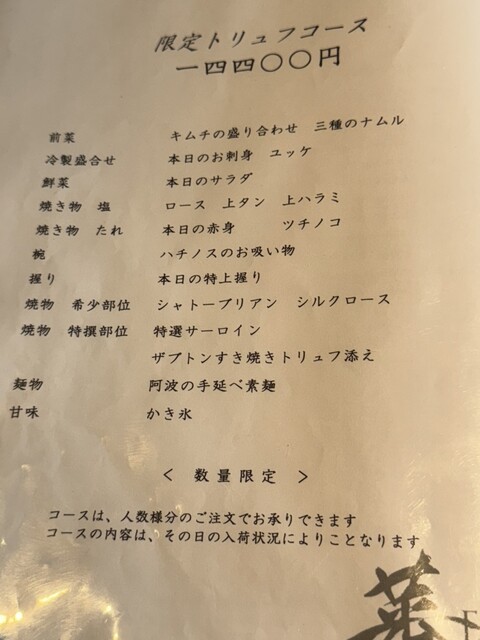 限定トリュフコース
一四四〇〇円
前菜 キムチの盛り合わせ 三種のナムル
冷製盛合せ 本日のお刺身 ユッケ
鮮菜 本日のサラダ
焼き物 塩 ロース 上タン 上ハラミ
焼き物 たれ 本日の赤身 ツチノコ
椀 ハチノスのお吸い物
握り 本日の特上握り
焼物 希少部位 シャトーブリアン シルクロース
焼物 特撰部位 特選サーロイン
ザブトンすき焼きトリュフ添え
麺物 阿波の手延べ素麺
甘味 かき氷
< 数量限定 >
コースは、人数様分のご注文でお承りできます
コースの内容は、その日の入荷状況によりことなります